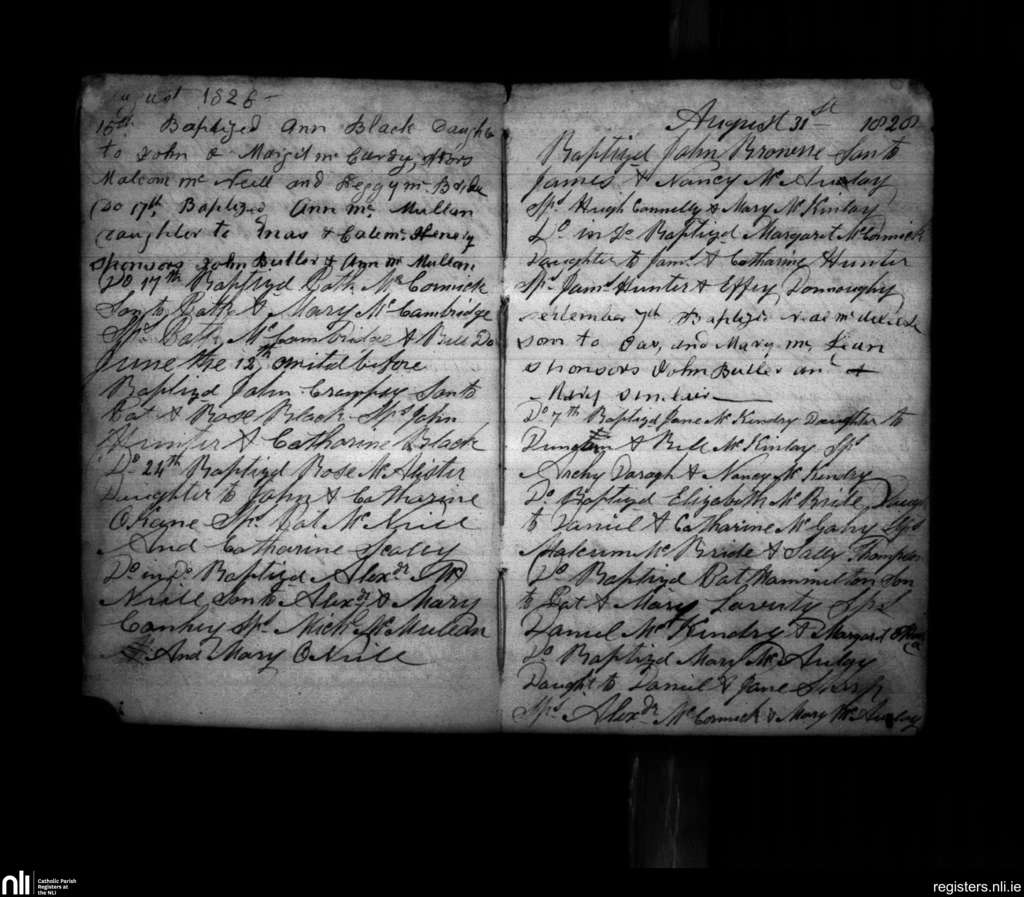 August 1828
15th Baptized Ann Black Daughter
to John & Margit mc Curdy, Spors
Malcom mc Neill and Peggy mc Bride
Do 17th Baptized Ann mc Mullan
daughter to &
sponsors John Butler & Ann mc Mullan
Do 17th Baptizd Path Mc Cormick
Son to Path & Mary McCambridge
Sps Path McCambridge & Bell Do
June the 12th omitd before
Baptizd John Crampsy Son to
Pat & Rose Black Sps John
Hunter & Catharine Black
Do 24th Baptizd Rose McAlister
Daughter to John & Catharine
O Kane Sps Pat McNeill
And Catharine Scally
Do in Do Baptizd Alexdr Mc
Neill Son to Alexdr & Mary
Conkey Sps Mick McMullan
And Mary O Neill
August 31st 1828
Baptizd John Browne Son to
James & Nancy McAuslay
Sps Hugh Connelly & Mary McKinlay
Do in Do Baptizd Margaret McCormick
Daughter to Jams & Catharine Hunter
Sps Jams Hunter & Effey Donnoughy
September 7th Baptized
son to and Mary mc Lean
sponsors John Butler and
Mary Sinclair
Do 7th Baptizd Jane McKendry Daughter to
& Bell McKinlay Sps
Archy Daragh & Nancy McKendry
Do Baptizd Elizabeth McBride Daug
to Daniel & Catharine McGahy Sps
Malcum McBride & Sally Thompson
Do Baptizd Pat Hammilton Son
to Pat & Mary Laverty Sps
Daniel McKendry & Margaret
Do Baptizd Mary McAuley
Daught to Daniel & Jane Sharp
Sps Alexdr McCormick & Mary McAuslay
nli
Catholic Parish
Registers at
the NLI
registers.nli.ie